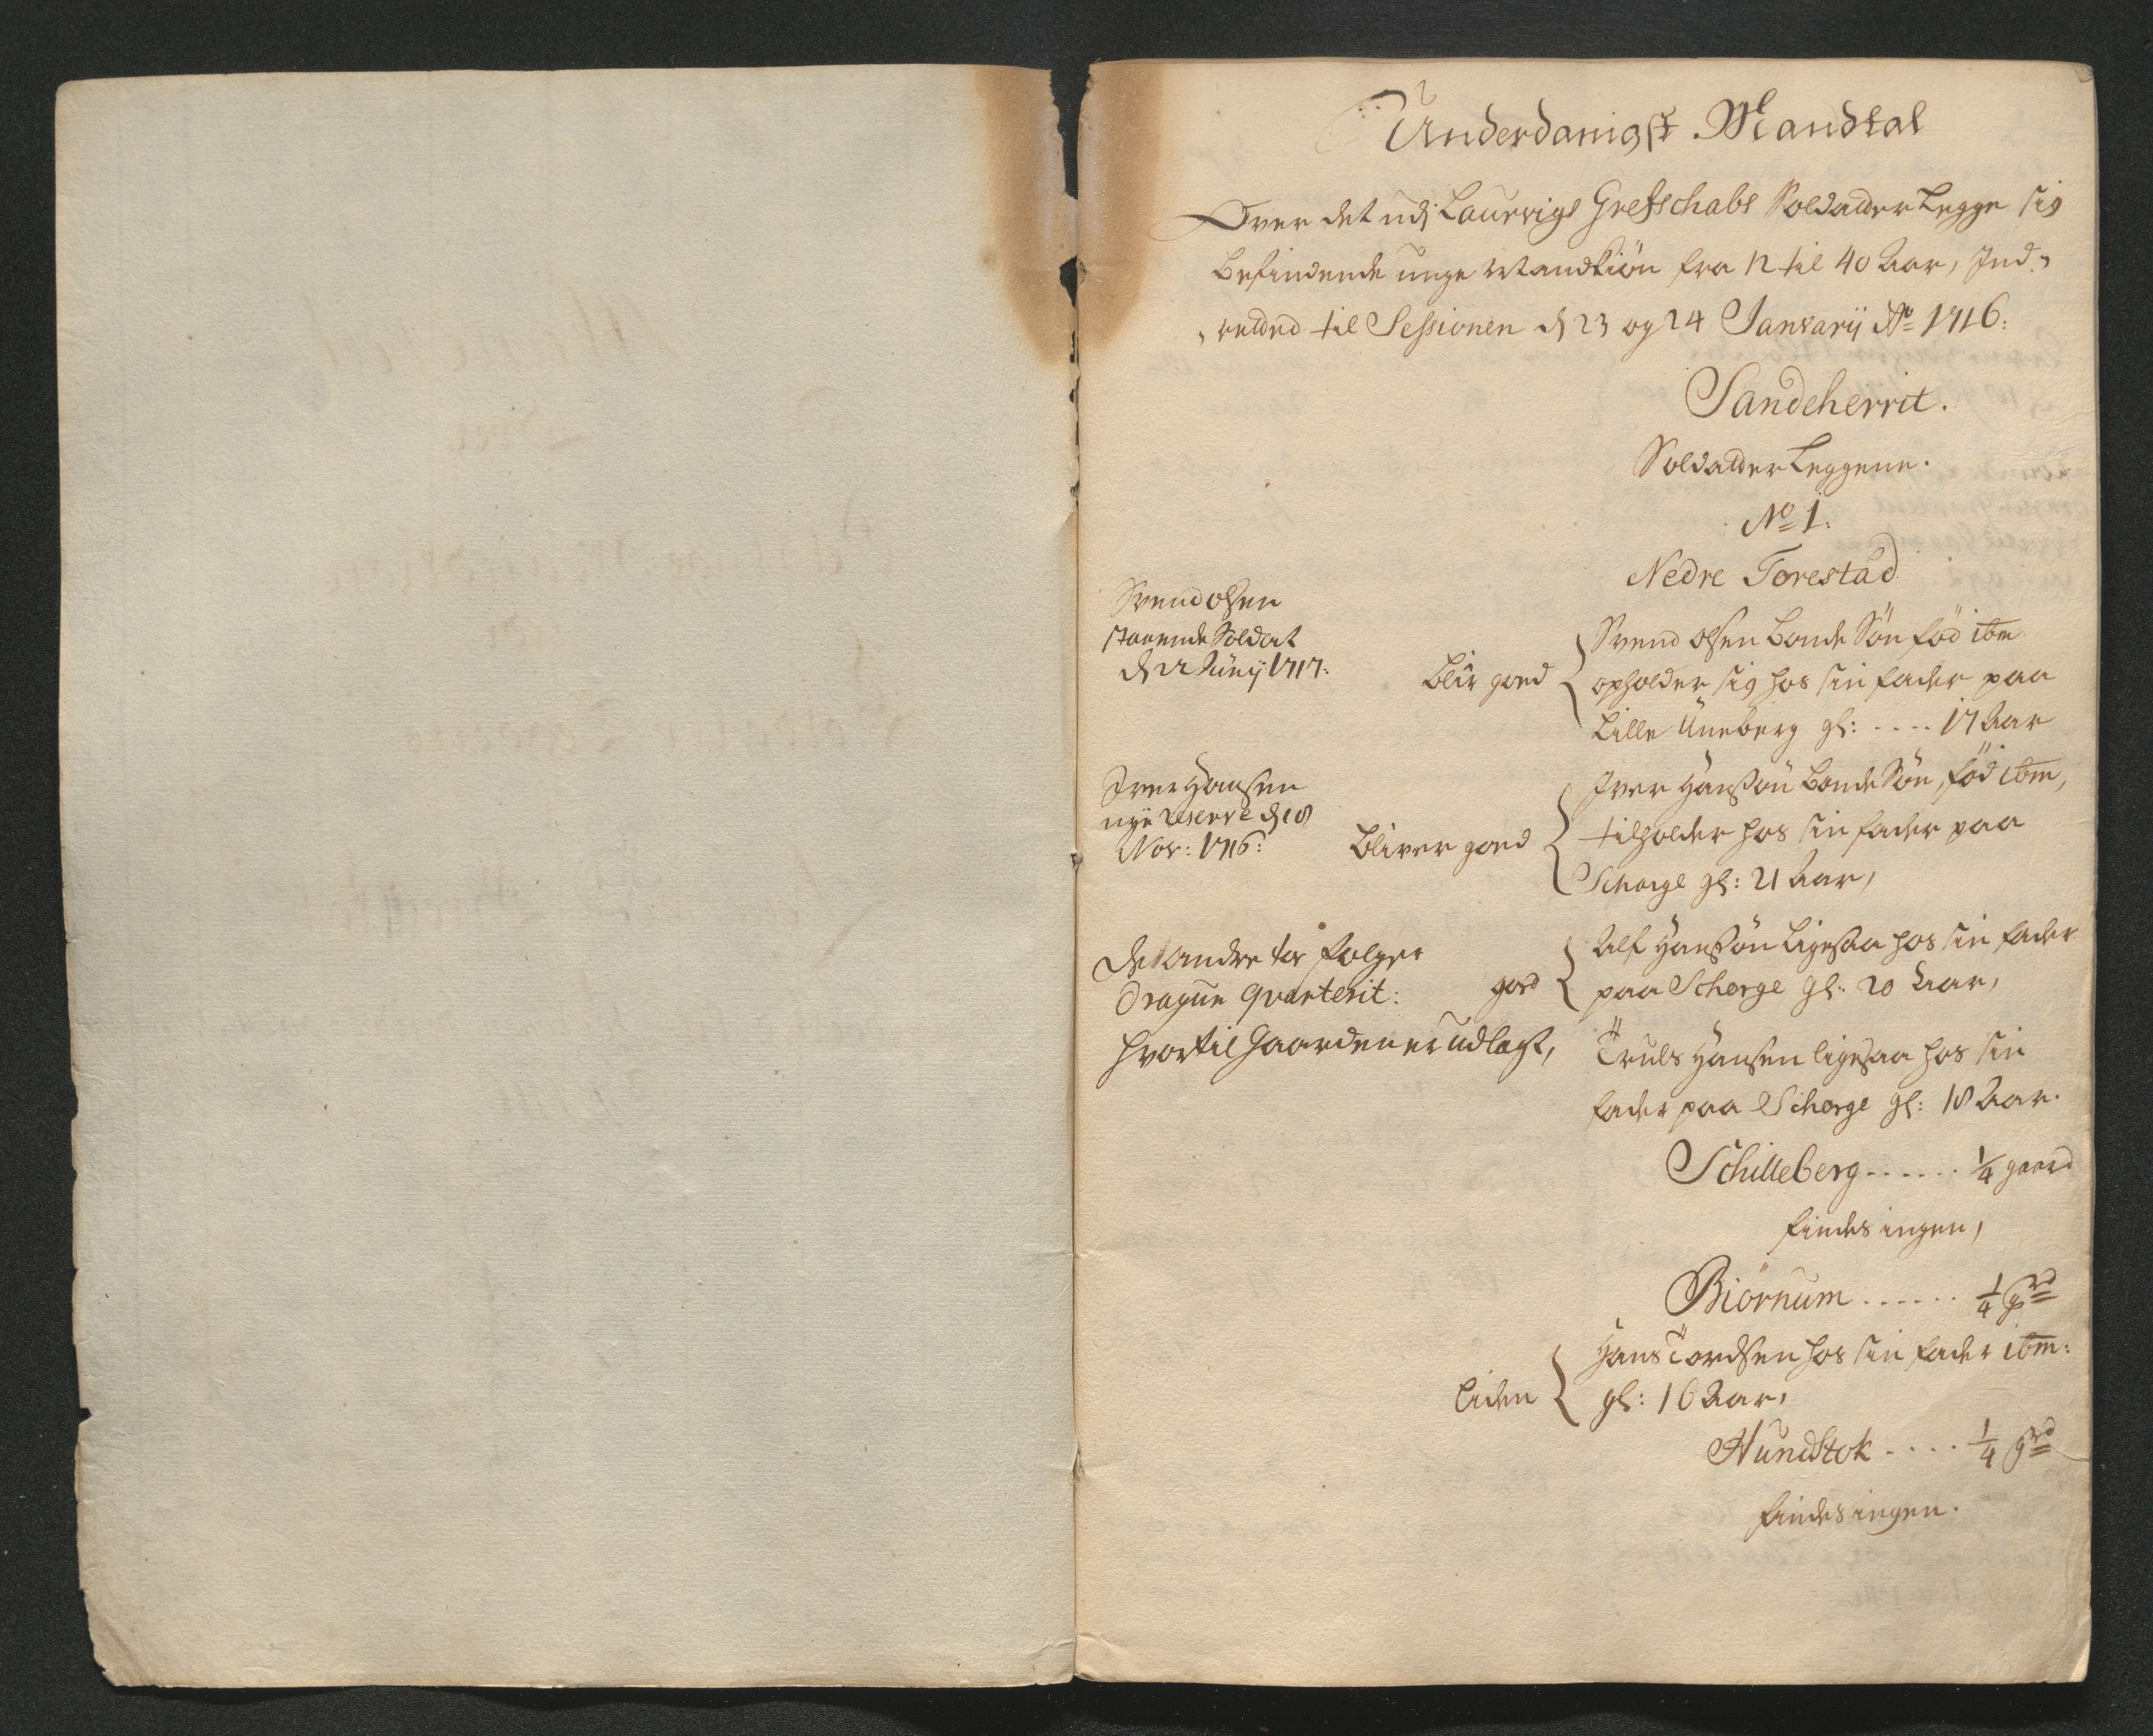 Underdanigst Mandtal
Over det udj Laurvigs Grefschabs Soldatter Legge sig
befindende unge Mandkiön fra 12 til 40 Aar, Ind-
retted til Sessionen d 23 og 24 Janvarij Ao 1716:
Sandeherrit.
Soldatter Leggene.
No 1.
Nedre Torestad
Svend Olsen
staaende Soldat
d 22 Junij 1717:
blir goed
Svend Olsen bonde Søn fød ibm
opholder sig hos sin fader paa
Lille Uneberg gl: .... 17 Aar
Iver Hansen
nye reserve d 18
Nov: 1716:
bliver goed
Iver Hansøn bonde Søn, fød ibm,
tilholder hos sin fader paa
Schorge gl: 21 Aar,
De andre toe følger
Dragun qvarterit:
hvortil Gaarden er udlagt,
goed
Alf Hansøn ligesaa hos sin fader
paa Schorge gl: 20 Aar,
Truls Hansen ligesaa hos sin
fader paa Schorge gl: 18 Aar.
Schilleberg ...... 1/4 gaard
findes ingen,
Biørnum ...... 1/4 grd
liden
Hans Tordsen hos sin fader ibm:
gl: 16 Aar,
Hundstok .... 1/4 grd
findes ingen.